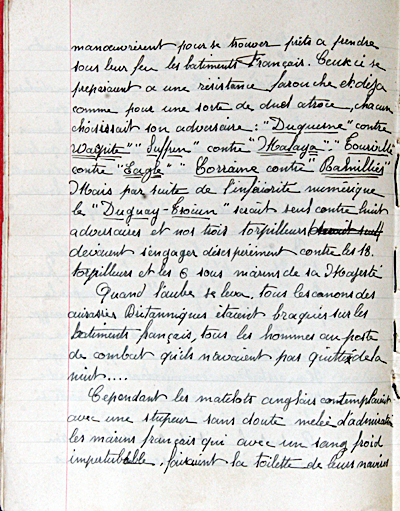 manœuvrèrent pour se trouver prêts a prendre
sous leur feu les batiments Français. Ceux ci se
preparaient a une résistance farouche et deja
comme pour une sorte de duel atroce, chacun
choisissait son adversaire : "Duquesne" contre
"Suffren" contre "Malaya" "Tourville"
contre "Eagle" "Lorraine contre "Ramillies"
Mais par suite de l'inferiorité numérique
le "Duguay-Trouin" serait seul contre huit
adversaires et nos trois torpilleurs
devaient s'engager désespérément contre les 18
torpilleurs et les 6 sous marins de sa Majesté
Quand l'aube se leva, tous les canons des
cuirassés Britanniques étaient braqués sur les
batiments français, tous les hommes au poste
de combat qu'ils n'avaient pas quittés de la
nuit....
Cependant les matelots anglais contemplaient
avec une stupeur sans doute melée d'admiration
les marins français qui avec un sang froid
imperturbable, faisaient la toilette de leurs navires